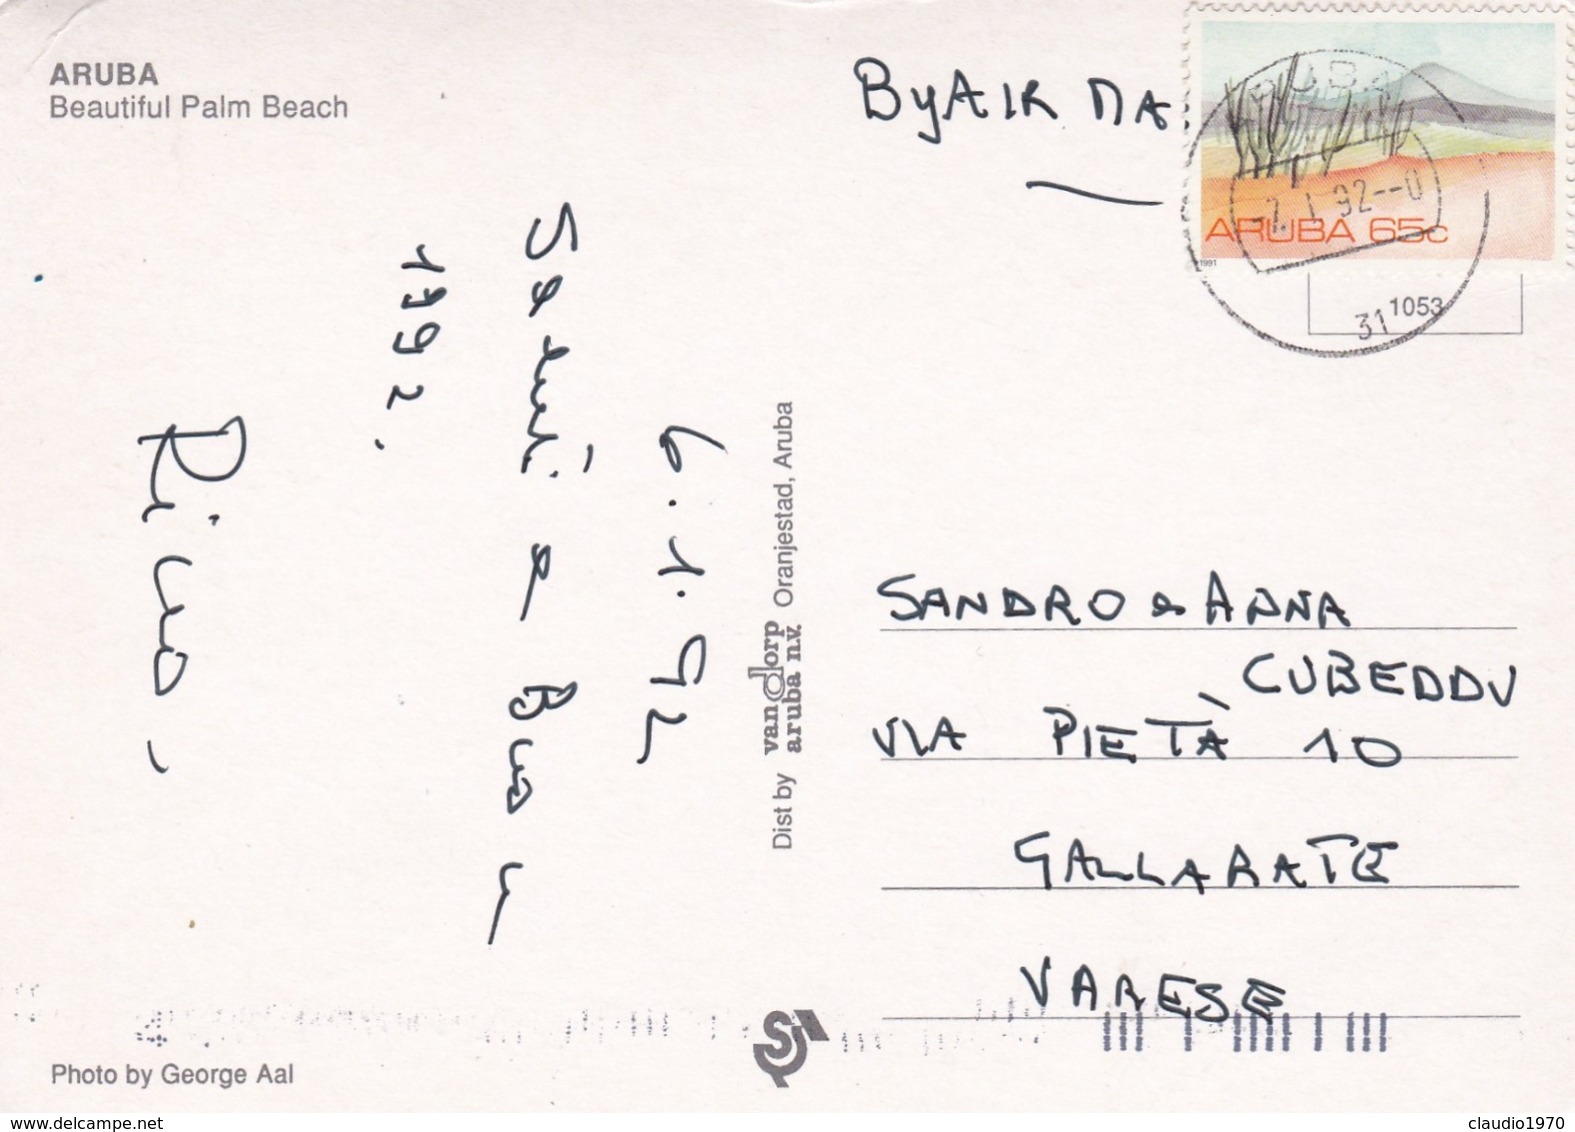 ARUBA
Beautiful Palm Beach
6.1.92
Saluti e Buon
1992.
Rino
Dist by van dorp aruba n.v. Oranjestad, Aruba
By AIR MA
ARUBA
-7.1.92--0
31
ARUBA 65c
1991
1053
SANDRO e ANNA
CUBEDDU
VIA PIETÀ 10
GALLARATE
VARESE
Photo by George Aal
www.delcampe.net
claudio1970